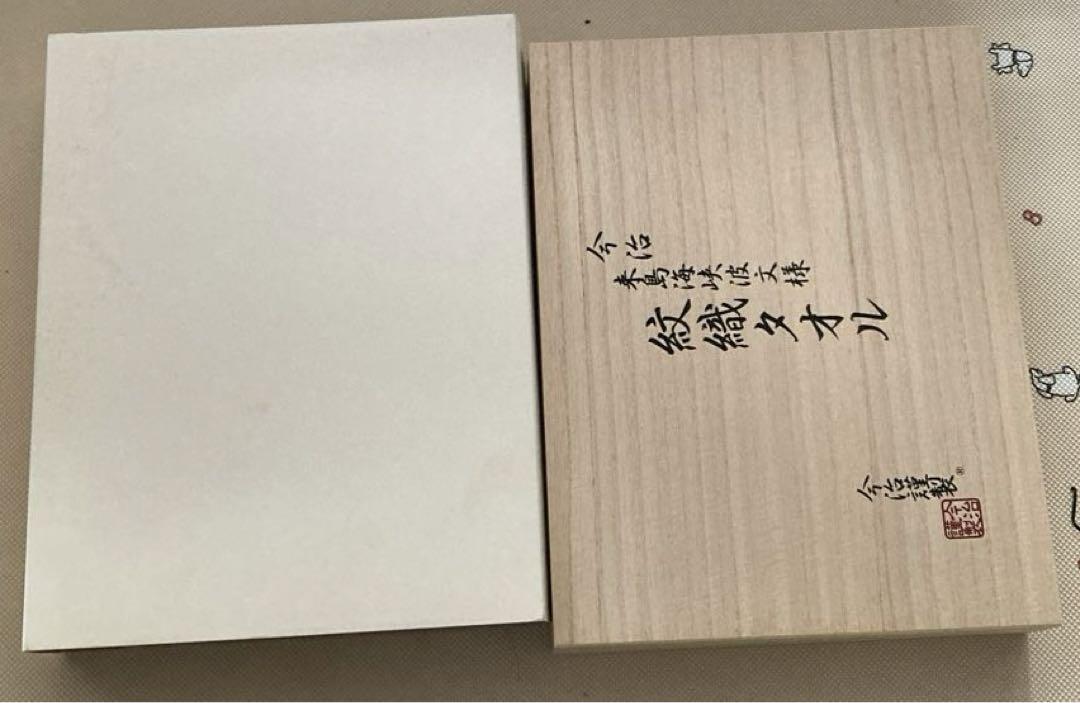 今治
来島海峡波文様
紋織タオル
今治謹製®
今治謹製
8